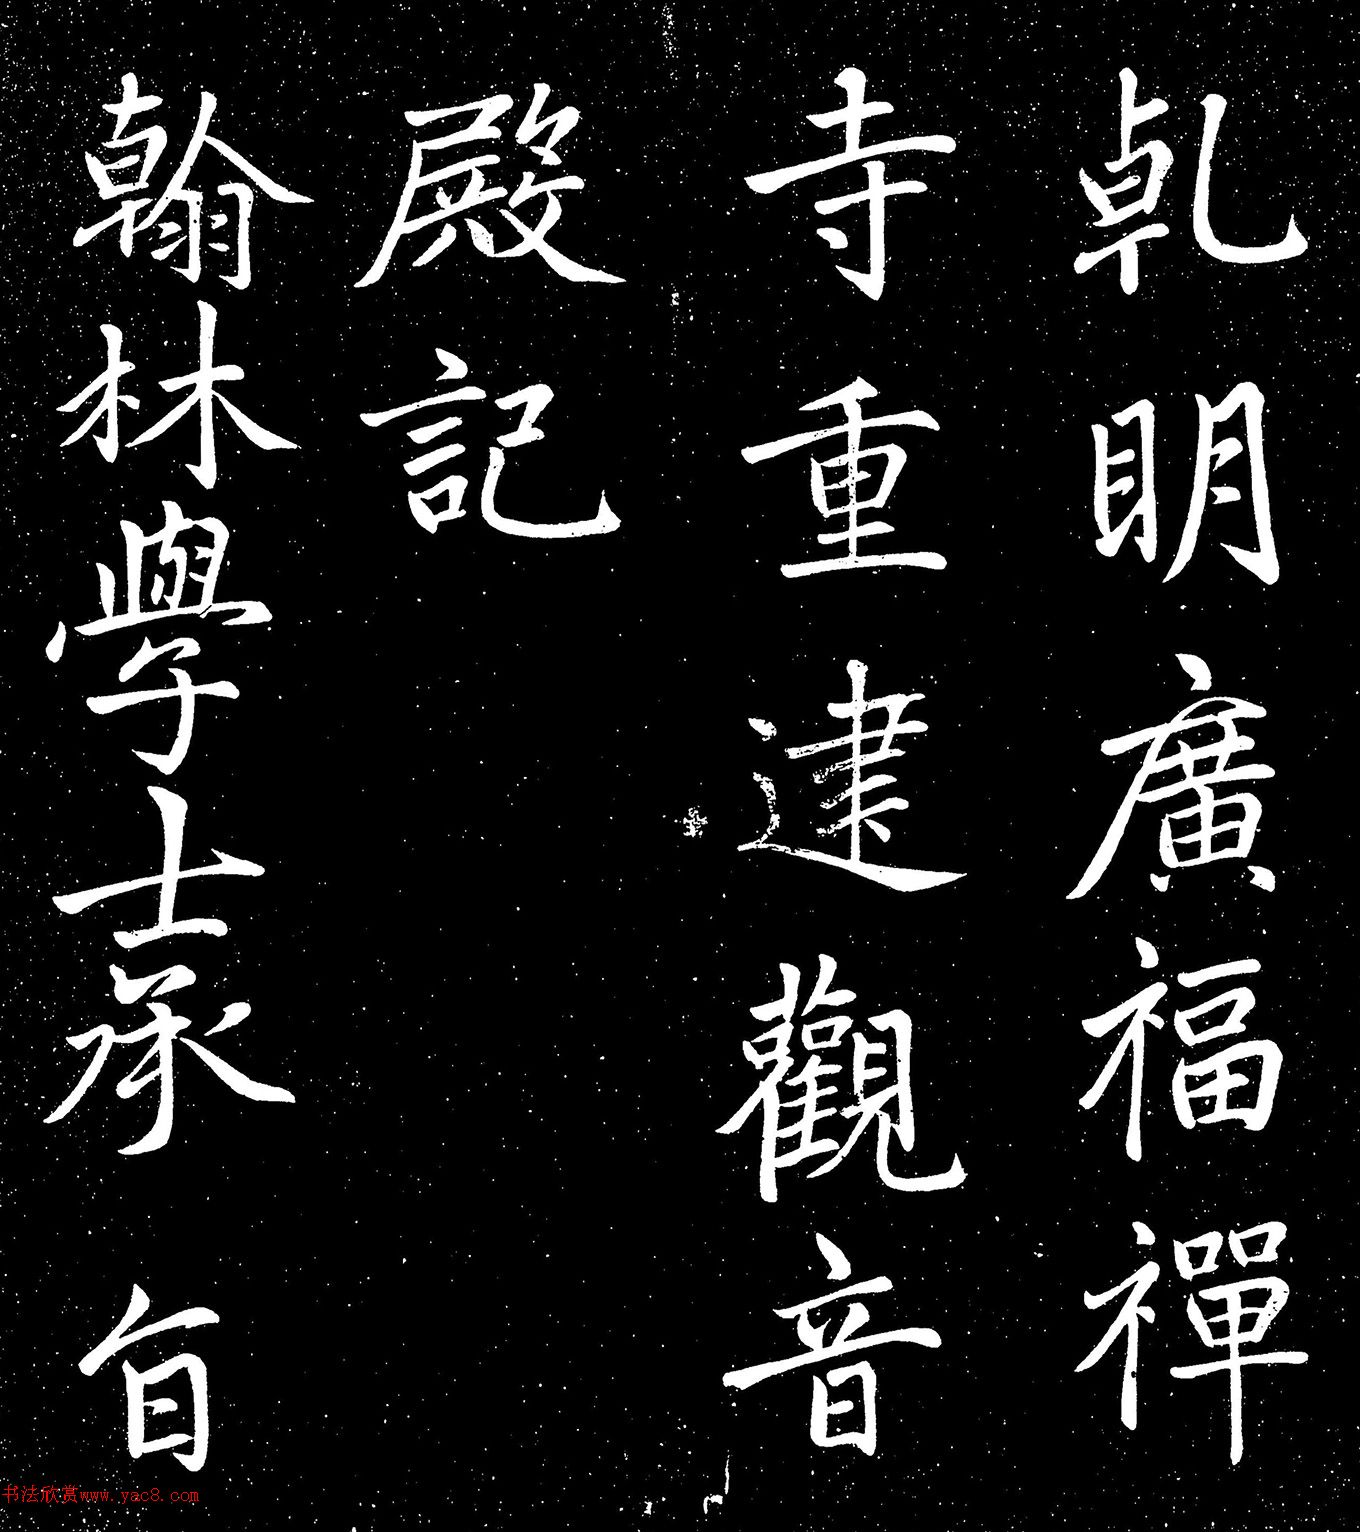 乹明廣福禪
寺重建觀音
殿記
翰林學士承旨
书法欣赏www.yac8.com